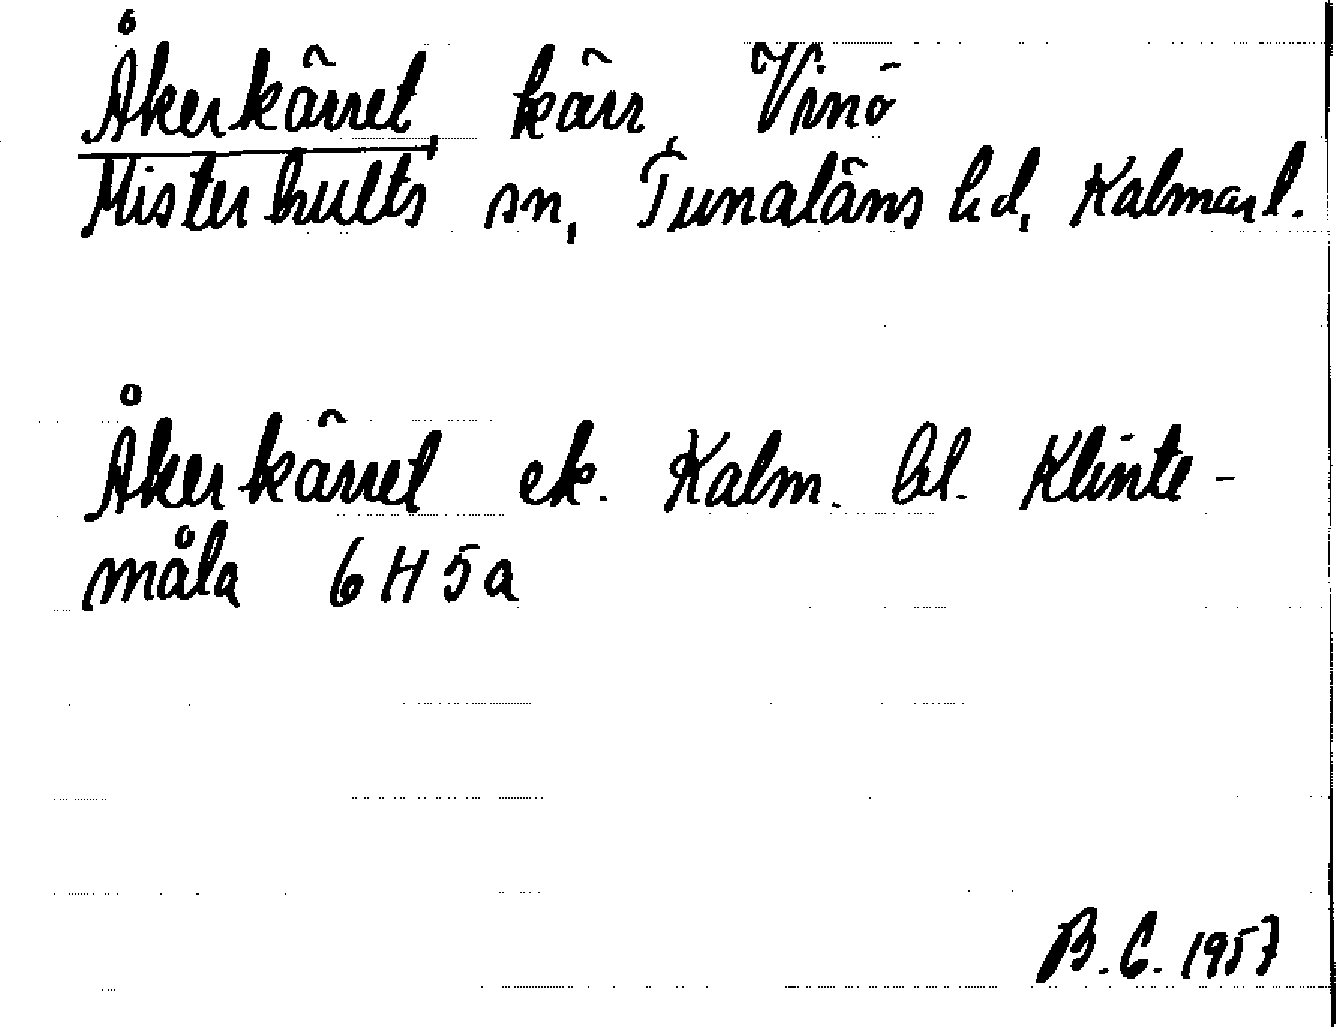 Åkerkärret, kärr, Vinö
Misterhults sn, Tunaläns hd, Kalmar l.
Åkerkärret ek. Kalm. bl. Klinte-
måla 6H5a
B.C. 1957